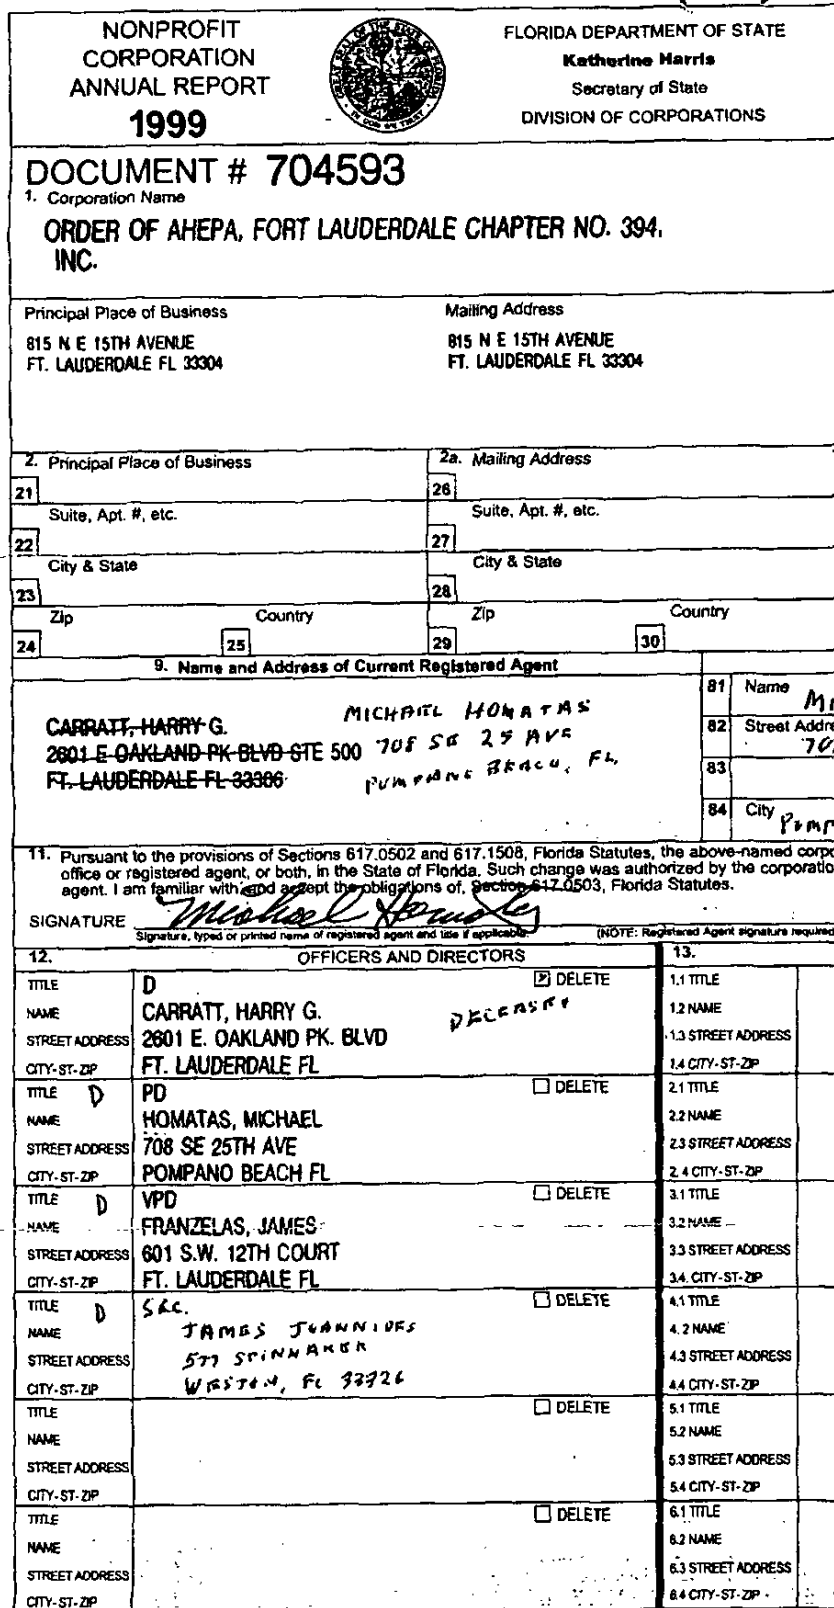 NONPROFIT
CORPORATION
ANNUAL REPORT
1999
FLORIDA DEPARTMENT OF STATE
Katherine Harris
Secretary of State
DIVISION OF CORPORATIONS
DOCUMENT # 704593
1. Corporation Name
ORDER OF AHEPA, FORT LAUDERDALE CHAPTER NO. 394,
INC.
Principal Place of Business
815 N E 15TH AVENUE
FT. LAUDERDALE FL 33304
Mailing Address
815 N E 15TH AVENUE
FT. LAUDERDALE FL 33304
2. Principal Place of Business
21
Suite, Apt. #, etc.
22
City & State
23
Zip
24
Country
25
2a. Mailing Address
26
Suite, Apt. #, etc.
27
City & State
28
Zip
29
Country
30
9. Name and Address of Current Registered Agent
CARRATT, HARRY G.
2601 E OAKLAND PK BLVD STE 500
FT. LAUDERDALE FL 33306
MICHAEL HOMATAS
708 SE 25 AVE
POMPANO BEACH, FL.
81 Name
Mi
82 Street Addre
70
83
84 City
Pomp
11. Pursuant to the provisions of Sections 617.0502 and 617.1508, Florida Statutes, the above-named corpo
office or registered agent, or both, in the State of Florida. Such change was authorized by the corporatio
agent. I am familiar with, and accept the obligations of, Section 617.0503, Florida Statutes.
SIGNATURE Michael Homatas
Signature, typed or printed name of registered agent and title if applicable.
(NOTE: Registered Agent signature required
12. OFFICERS AND DIRECTORS
13.
TITLE D DELETE
NAME CARRATT, HARRY G.
DECEASED
STREET ADDRESS 2601 E. OAKLAND PK. BLVD
CITY-ST-ZIP FT. LAUDERDALE FL
1.1 TITLE
1.2 NAME
1.3 STREET ADDRESS
1.4 CITY-ST-ZIP
TITLE D PD DELETE
NAME HOMATAS, MICHAEL
STREET ADDRESS 708 SE 25TH AVE
CITY-ST-ZIP POMPANO BEACH FL
2.1 TITLE
2.2 NAME
2.3 STREET ADDRESS
2.4 CITY-ST-ZIP
TITLE D VPD DELETE
NAME FRANZELAS, JAMES
STREET ADDRESS 601 S.W. 12TH COURT
CITY-ST-ZIP FT. LAUDERDALE FL
3.1 TITLE
3.2 NAME
3.3 STREET ADDRESS
3.4. CITY-ST-ZIP
TITLE D SEC. DELETE
NAME JAMES JOANNIDES
STREET ADDRESS 577 SPINNAKER
CITY-ST-ZIP WESTON, FL 33326
4.1 TITLE
4.2 NAME
4.3 STREET ADDRESS
4.4 CITY-ST-ZIP
TITLE DELETE
NAME
STREET ADDRESS
CITY-ST-ZIP
5.1 TITLE
5.2 NAME
5.3 STREET ADDRESS
5.4 CITY-ST-ZIP
TITLE DELETE
NAME
STREET ADDRESS
CITY-ST-ZIP
6.1 TITLE
6.2 NAME
6.3 STREET ADDRESS
6.4 CITY-ST-ZIP